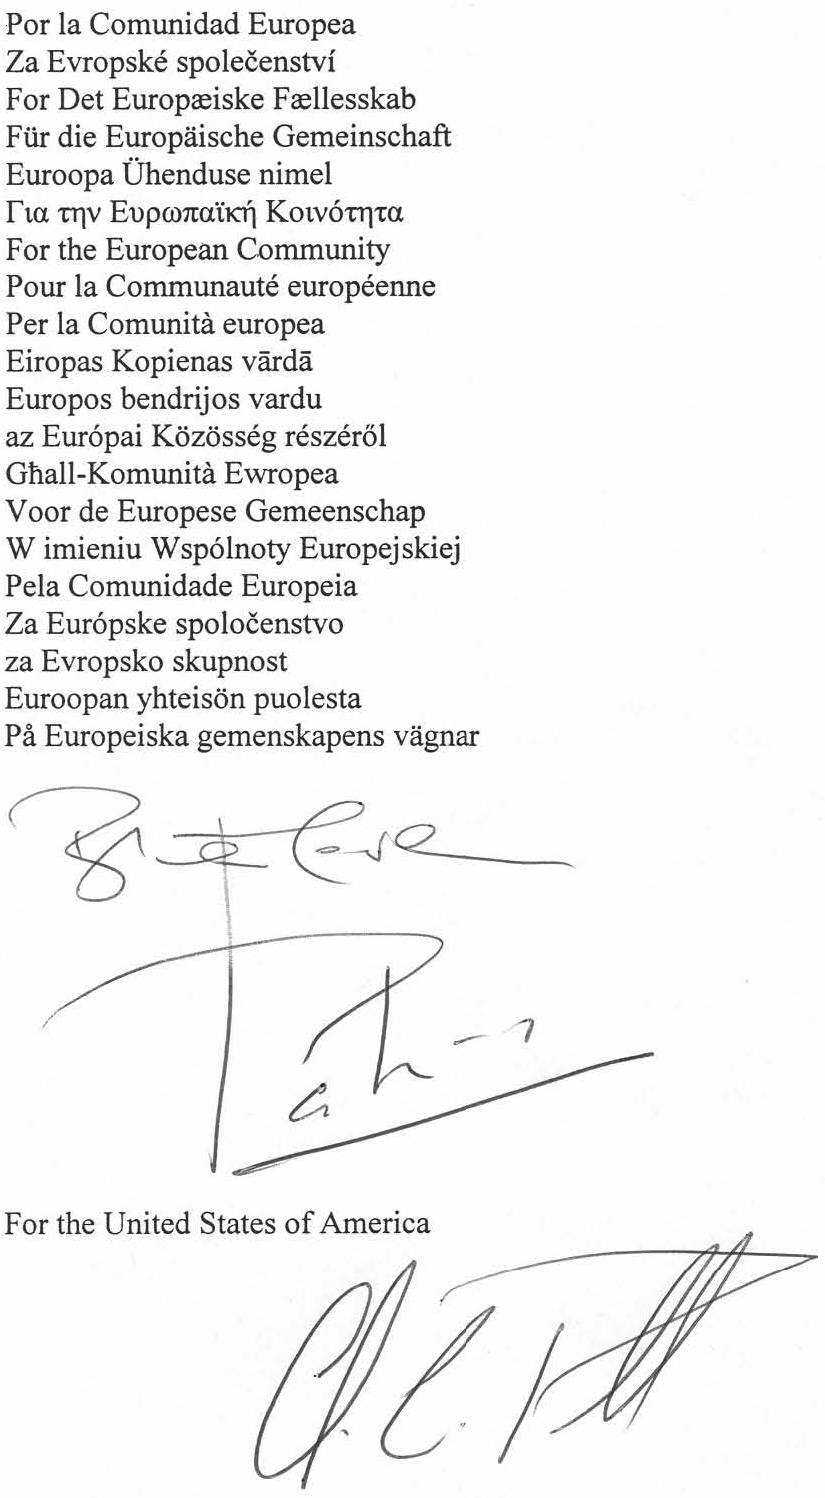 Por la Comunidad Europea
Za Evropské společenství
For Det Europæiske Fællesskab
Für die Europäische Gemeinschaft
Euroopa Ühenduse nimel
Για την Ευρωπαϊκή Κοινότητα
For the European Community
Pour la Communauté européenne
Per la Comunità europea
Eiropas Kopienas vārdā
Europos bendrijos vardu
az Európai Közösség részéről
Għall-Komunità Ewropea
Voor de Europese Gemeenschap
W imieniu Wspólnoty Europejskiej
Pela Comunidade Europeia
Za Európske spoločenstvo
za Evropsko skupnost
Euroopan yhteisön puolesta
På Europeiska gemenskapens vägnar
For the United States of America